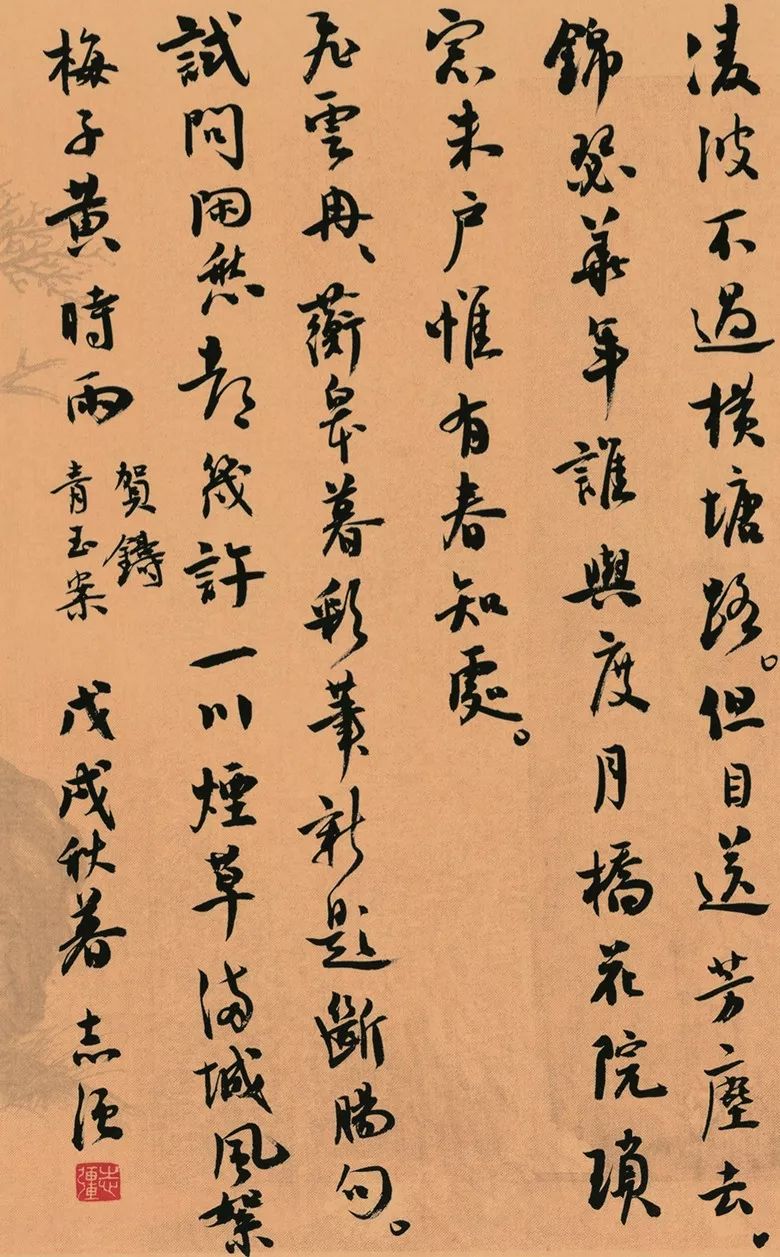 凌波不過橫塘路。但目送芳塵去。
錦瑟華年誰與度月橋花院瑣
窓朱户惟有春知處。
飛雲冉、蘅皋暮彩筆新題斷腸句。
試問閑愁都幾許一川煙草滿城風絮
梅子黃時雨
賀鑄
青玉案
戊戌秋暮 志
志